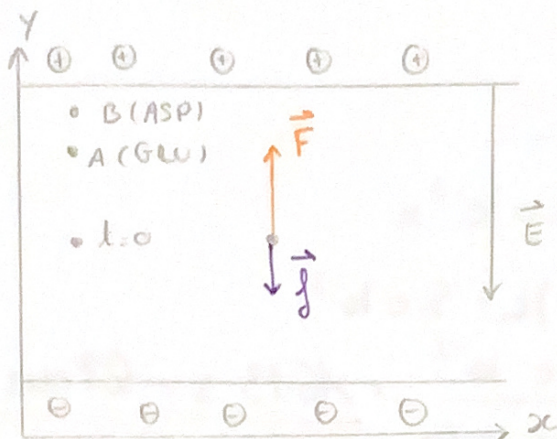 Y
⊕ ⊕ ⊕ ⊕ ⊕
• B (ASP)
F
• A (GLU)
• t=0
E
f
⊖ ⊖ ⊖ ⊖ ⊖
x